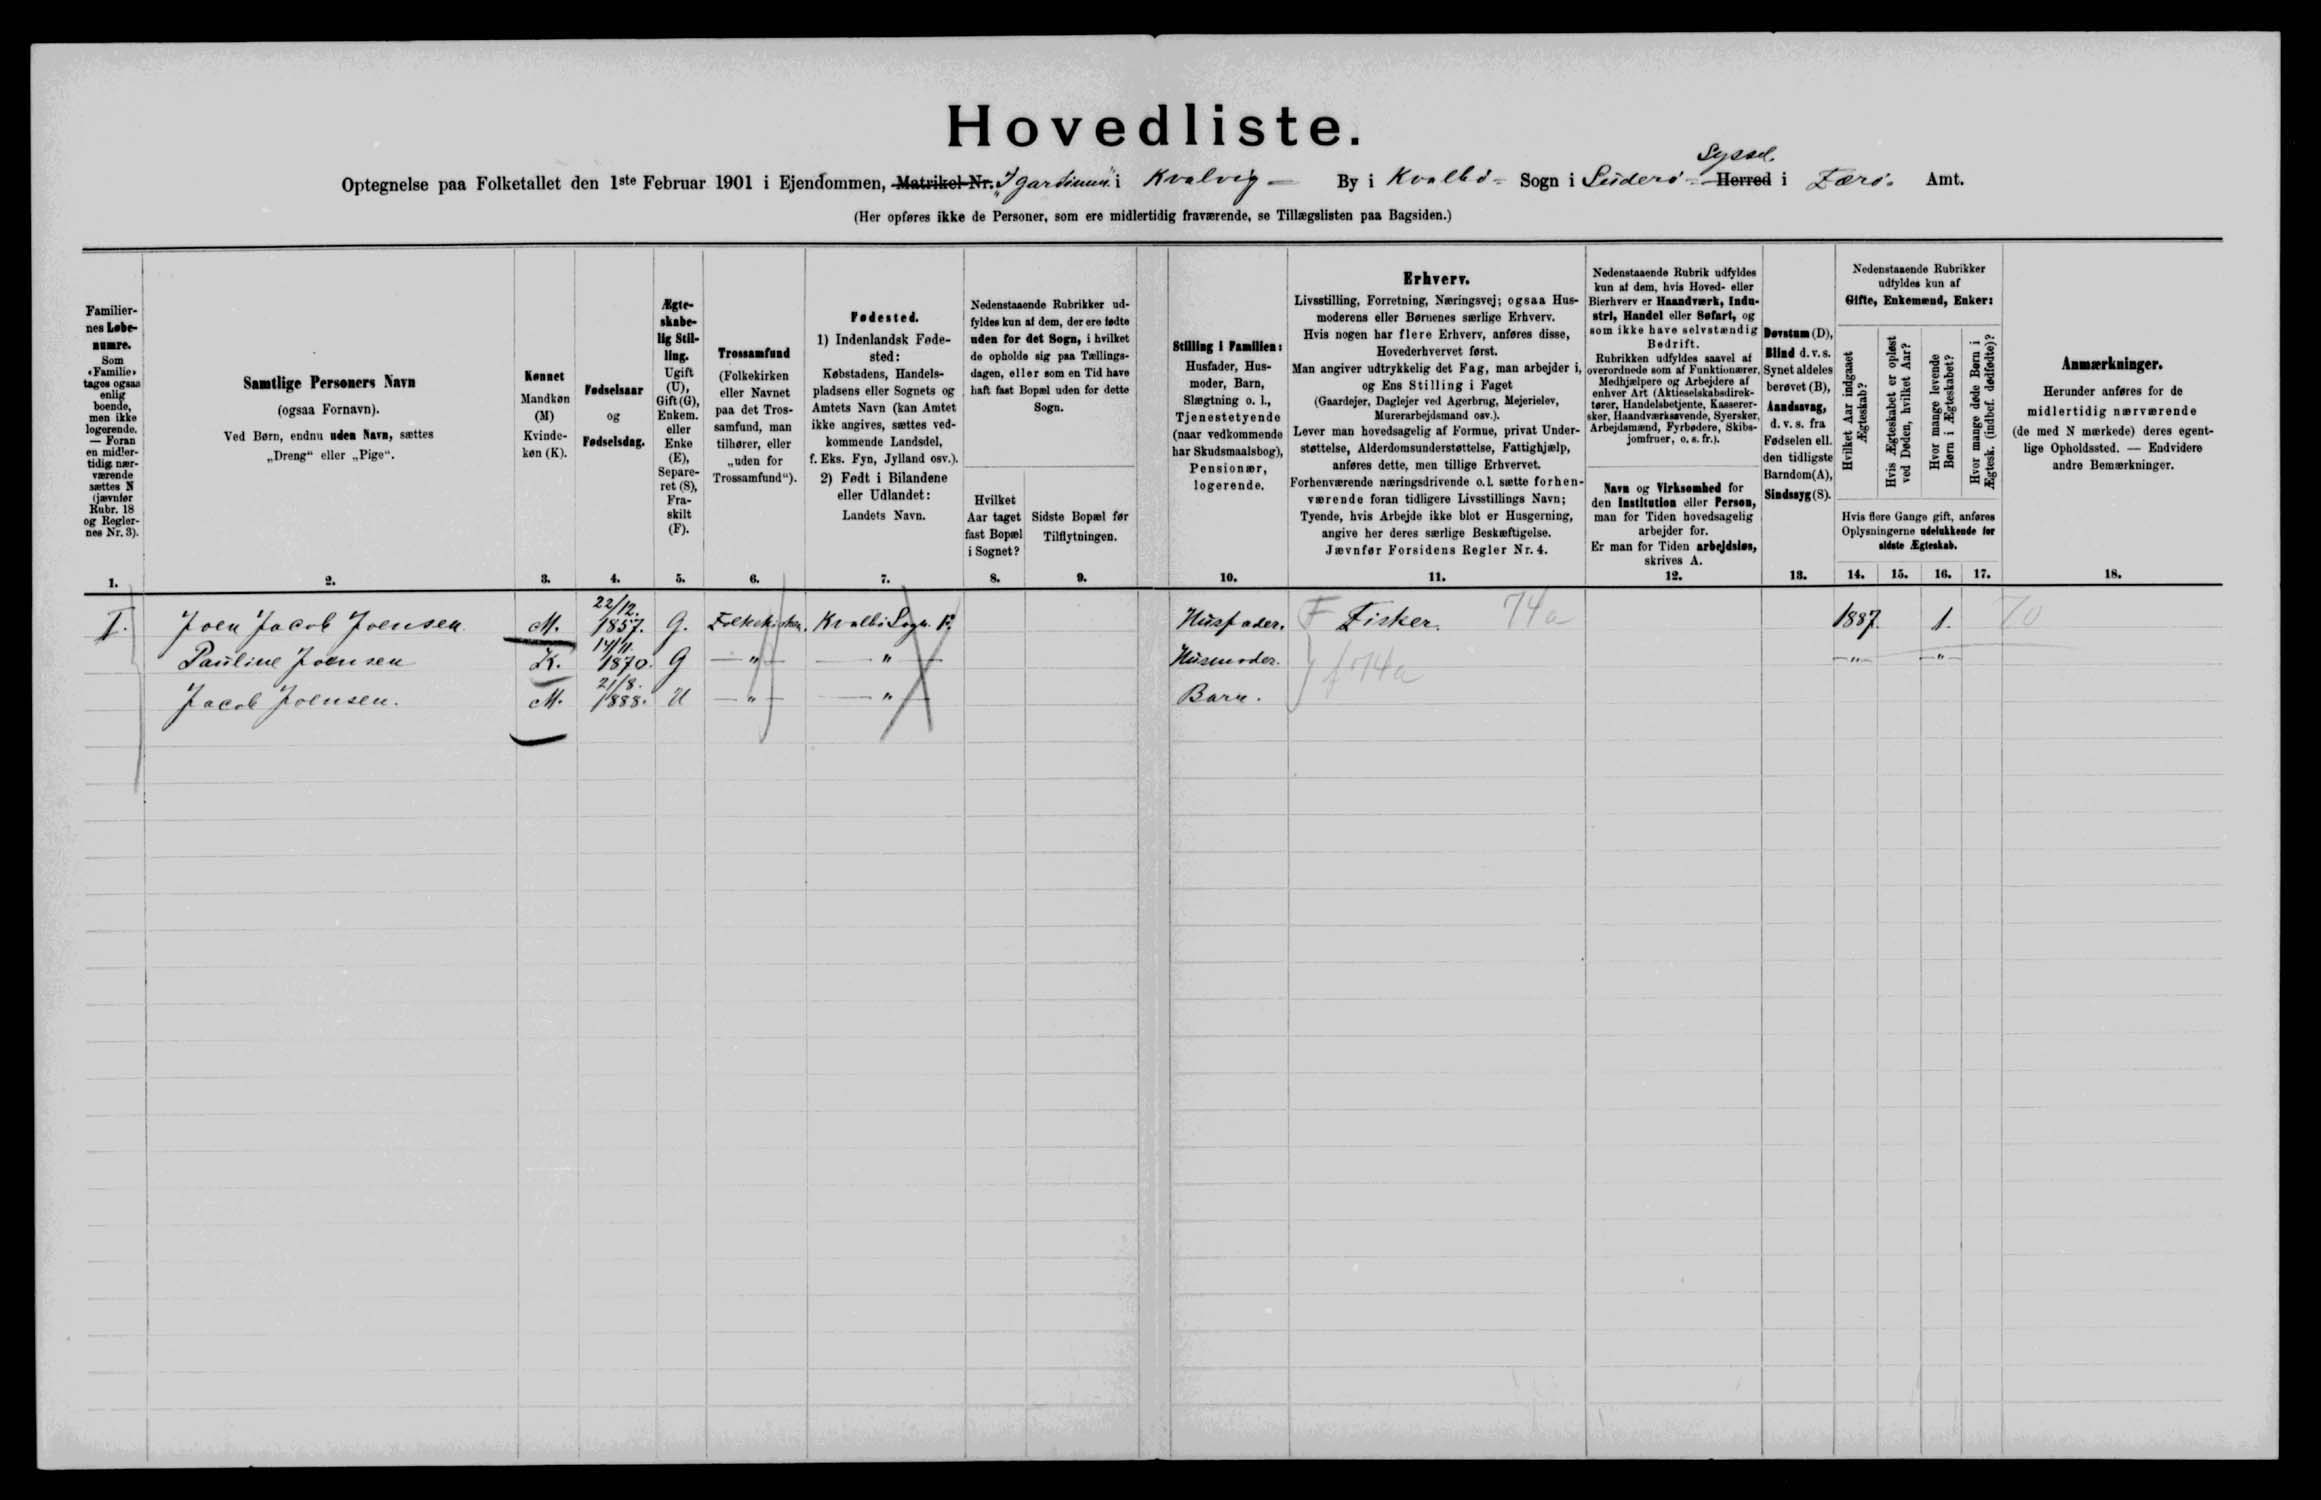 Hovedliste.
Syssel.
Optegnelse paa Folketallet den 1ste Februar 1901 i Ejendommen, Matrikel-Nr. i Kvalvig By i Kvalbö Sogn i Suderö Herred i Færö Amt.
(Her opføres ikke de Personer, som ere midlertidig fraværende, se Tillægslisten paa Bagsiden.)
Familier-
nes Løbe-
numre.
Som
«Familie»
tages ogsaa
enlig
boende,
men ikke
logerende.
— Foran
en midler-
tidig nær-
værende
sættes N
(jævnfør
Rubr. 18
og Regler-
nes Nr. 3).
1.
Samtlige Personers Navn
(ogsaa Fornavn).
Ved Børn, endnu uden Navn, sættes
„Dreng“ eller „Pige“.
2.
Kønnet
Mandkøn
(M)
Kvinde-
køn (K).
3.
Fødselsaar
og
Fødselsdag.
4.
Ægte-
skabe-
lig Stil-
ling.
Ugift
(U),
Gift (G),
Enkem.
eller
Enke
(E),
Separe-
ret (S),
Fra-
skilt
(F).
5.
Trossamfund
(Folkekirken
eller Navnet
paa det Tros-
samfund, man
tilhører, eller
„uden for
Trossamfund“).
6.
Fødested.
1) Indenlandsk Føde-
sted:
Købstadens, Handels-
pladsens eller Sognets og
Amtets Navn (kan Amtet
ikke angives, sættes ved-
kommende Landsdel,
f. Eks. Fyn, Jylland osv.).
2) Født i Bilandene
eller Udlandet:
Landets Navn.
7.
Nedenstaaende Rubrikker ud-
fyldes kun af dem, der ere fødte
uden for det Sogn, i hvilket
de opholde sig paa Tællings-
dagen, eller som en Tid have
haft fast Bopæl uden for dette
Sogn.
Hvilket
Aar taget
fast Bopæl
i Sognet?
8.
Sidste Bopæl før
Tilflytningen.
9.
Stilling i Familien:
Husfader, Hus-
moder, Barn,
Slægtning o. l.,
Tjenestetyende
(naar vedkommende
har Skudsmaalsbog),
Pensionær,
logerende.
10.
Erhverv.
Livsstilling, Forretning, Næringsvej; ogsaa Hus-
moderens eller Børnenes særlige Erhverv.
Hvis nogen har flere Erhverv, anføres disse,
Hovederhvervet først.
Man angiver udtrykkelig det Fag, man arbejder i,
og Ens Stilling i Faget
(Gaardejer, Daglejer ved Agerbrug, Mejerielev,
Murerarbejdsmand osv.).
Lever man hovedsagelig af Formue, privat Under-
støttelse, Alderdomsunderstøttelse, Fattighjælp,
anføres dette, men tillige Erhvervet.
Forhenværende næringsdrivende o. l. sætte forhen-
værende foran tidligere Livsstillings Navn;
Tyende, hvis Arbejde ikke blot er Husgerning,
angive her deres særlige Beskæftigelse.
Jævnfør Forsidens Regler Nr. 4.
11.
Nedenstaaende Rubrik udfyldes
kun af dem, hvis Hoved- eller
Bierhverv er Haandværk, Indu-
stri, Handel eller Søfart, og
som ikke have selvstændig
Bedrift.
Rubrikken udfyldes saavel af
overordnede som af Funktionærer,
Medhjælpere og Arbejdere af
enhver Art (Aktieselskabsdirek-
tører, Handelsbetjente, Kasserer-
sker, Haandværkssvende, Syersker,
Arbejdsmænd, Fyrbødere, Skibs-
jomfruer, o. s. fr.).
Navn og Virksomhed for
den Institution eller Person,
man for Tiden hovedsagelig
arbejder for.
Er man for Tiden arbejdsløs,
skrives A.
12.
Døvstum (D),
Blind d. v. s.
Synet aldeles
berøvet (B),
Aandssvag,
d. v. s. fra
Fødselen ell.
den tidligste
Barndom (A),
Sindssyg (S).
13.
Nedenstaaende Rubrikker
udfyldes kun af
Gifte, Enkemænd, Enker:
Hvilket Aar indgaaet
Ægteskab?
Hvis Ægteskabet er opløst
ved Døden, hvilket Aar?
Hvor mange levende
Børn i Ægteskabet?
Hvor mange døde Børn i
Ægtesk. (indbef. dødfødte)?
Hvis flere Gange gift, anføres
Oplysningerne udelukkende for
sidste Ægteskab.
14. 15. 16. 17.
Anmærkninger.
Herunder anføres for de
midlertidig nærværende
(de med N mærkede) deres egent-
lige Opholdssted. — Endvidere
andre Bemærkninger.
18.
I. Joen Jacob Joensen M. 22/12. 1857. G. Folkekirken. Kvalbö Sogn. F. Husfader. F Fisker. 74a 1887. 1. 70
Pauline Joensen K. 14/11. 1870. G — " — — " — Husmoder. f 74a — " — — " —
Jacob Joensen. M. 21/8. 1888. U — " — — " — Barn.